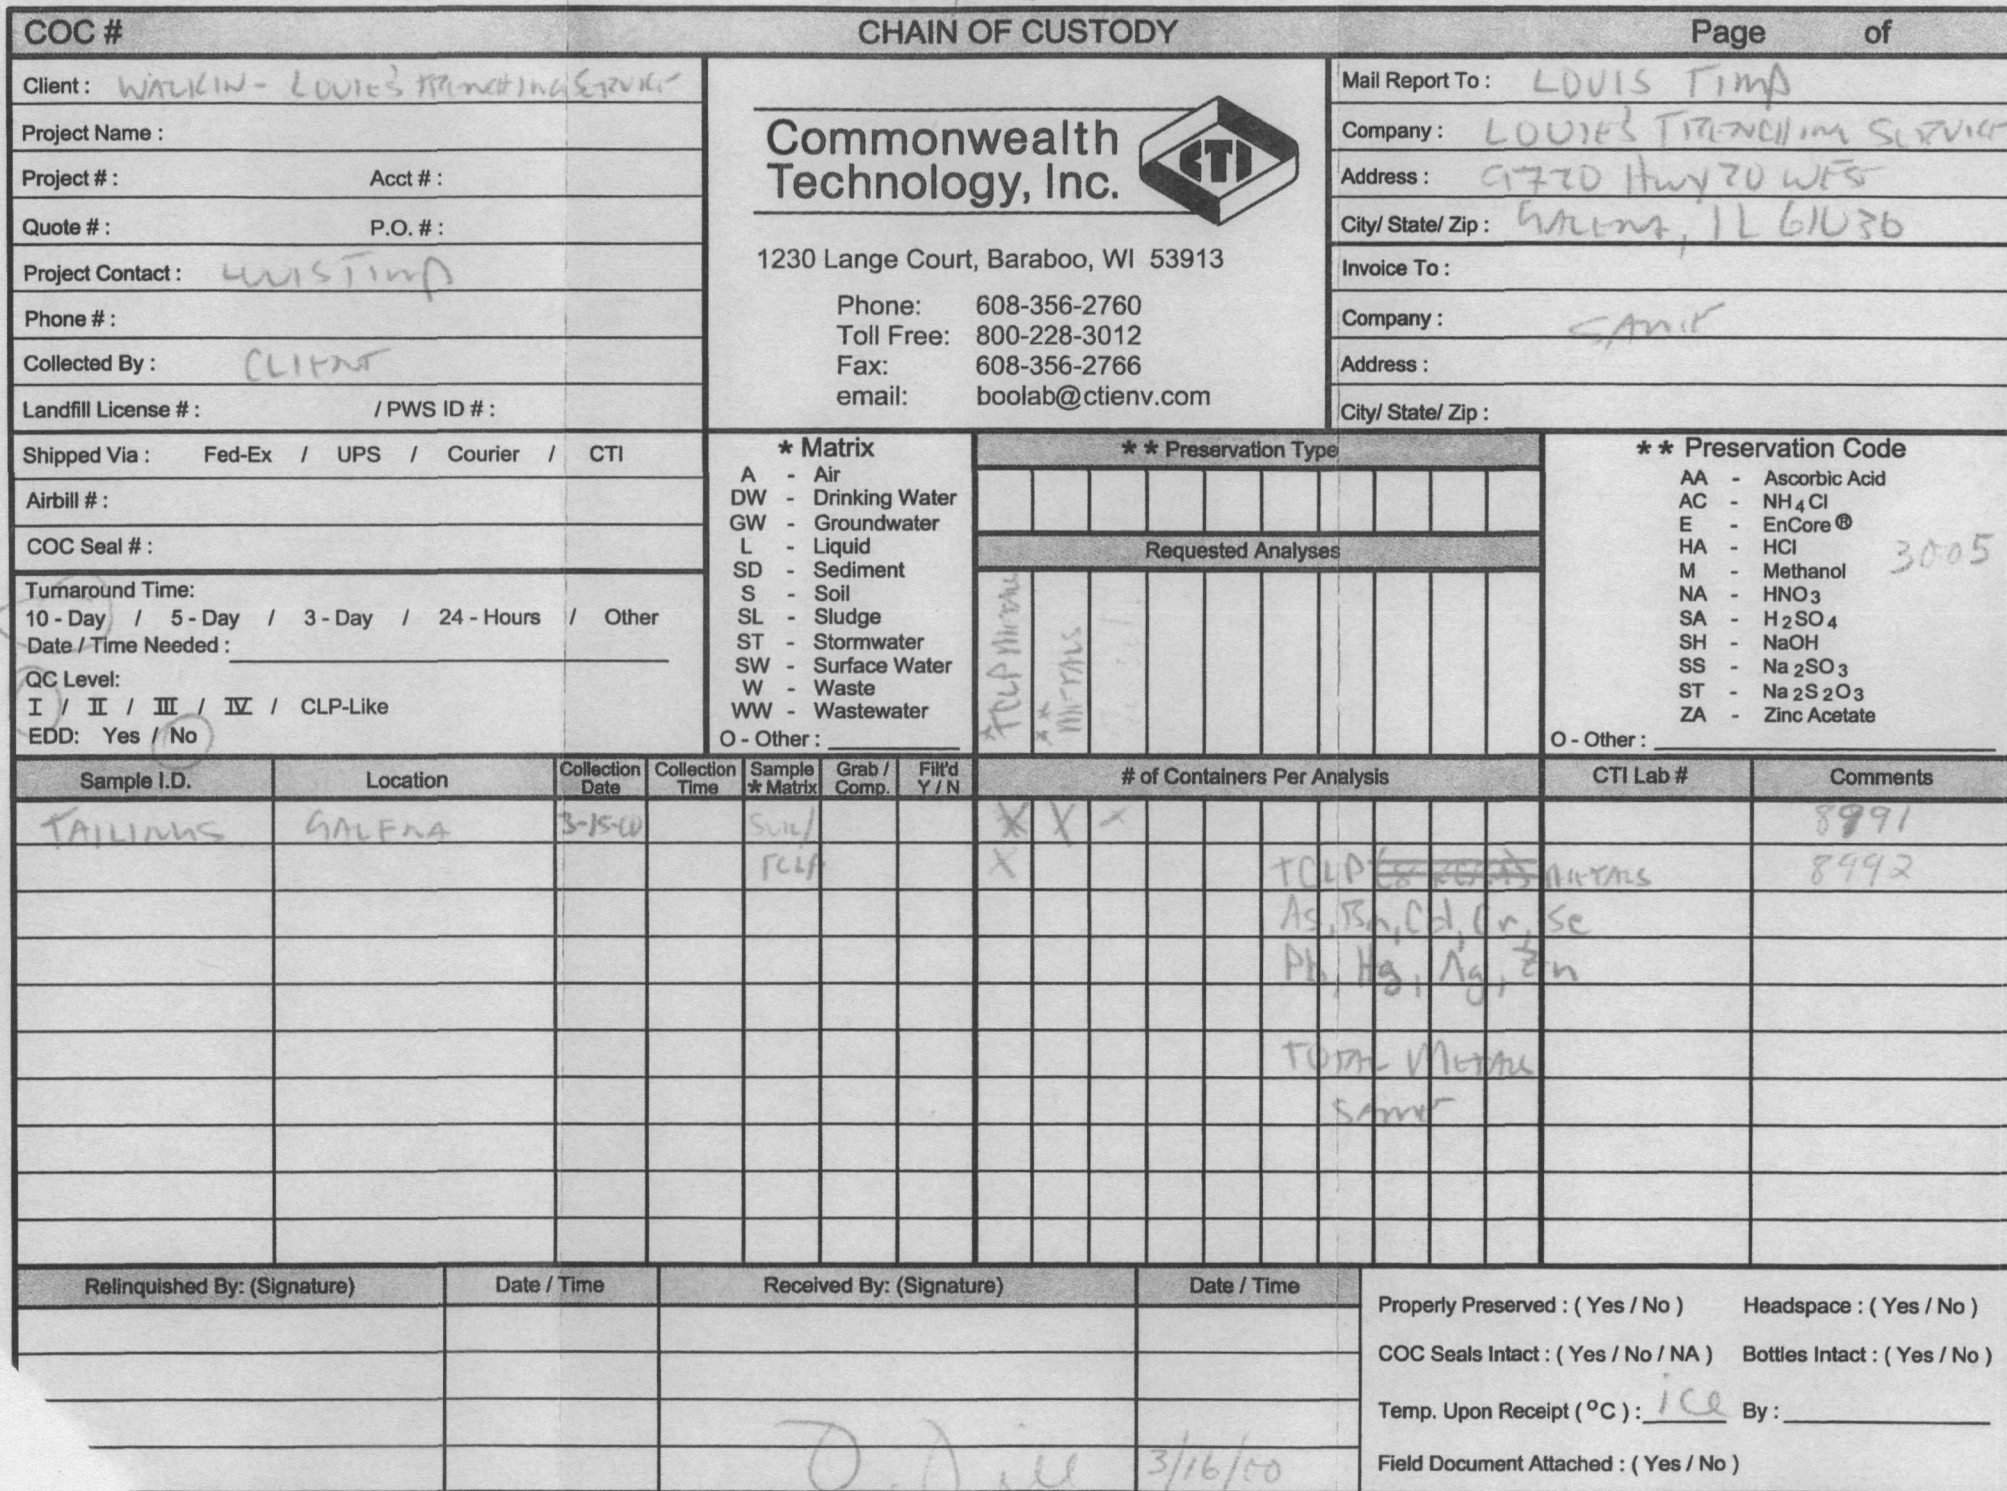 COC # CHAIN OF CUSTODY Page of
Client : WALKIN - LOUIE'S TRENCHING SERVICE
Project Name :
Project # : Acct # :
Quote # : P.O. # :
Project Contact : LOUIS TIMP
Phone # :
Collected By : CLIENT
Landfill License # : / PWS ID # :
Commonwealth
Technology, Inc.
CTI
1230 Lange Court, Baraboo, WI 53913
Phone: 608-356-2760
Toll Free: 800-228-3012
Fax: 608-356-2766
email: boolab@ctienv.com
Mail Report To : LOUIS TIMP
Company : LOUIE'S TRENCHING SERVICE
Address : 9720 Hwy 20 WEST
City/ State/ Zip : GALENA, IL 61036
Invoice To :
Company : SAME
Address :
City/ State/ Zip :
Shipped Via : Fed-Ex / UPS / Courier / CTI
Airbill # :
COC Seal # :
Turnaround Time:
10 - Day / 5 - Day / 3 - Day / 24 - Hours / Other
Date / Time Needed :
QC Level:
I / II / III / IV / CLP-Like
EDD: Yes / No
* Matrix
A - Air
DW - Drinking Water
GW - Groundwater
L - Liquid
SD - Sediment
S - Soil
SL - Sludge
ST - Stormwater
SW - Surface Water
W - Waste
WW - Wastewater
O - Other :
* * Preservation Type
Requested Analyses
*TCLP Metals
** METALS
* * Preservation Code
AA - Ascorbic Acid
AC - NH4Cl
E - EnCore ®
HA - HCl
M - Methanol
NA - HNO3
SA - H2SO4
SH - NaOH
SS - Na2SO3
ST - Na2S2O3
ZA - Zinc Acetate
O - Other :
3005
Sample I.D. Location Collection Date Collection Time Sample * Matrix Grab / Comp. Filt'd Y / N # of Containers Per Analysis CTI Lab # Comments
TAILINGS GALENA 3-15-00 SOIL/ X X X 8991
TCLP X TCLP METALS 8992
As, Ba, Cd, Cr, Se
Pb, Hg, Ag, Zn
TOTAL METALS
SAME
Relinquished By: (Signature) Date / Time Received By: (Signature) Date / Time
3/16/00
Properly Preserved : ( Yes / No ) Headspace : ( Yes / No )
COC Seals Intact : ( Yes / No / NA ) Bottles Intact : ( Yes / No )
Temp. Upon Receipt ( °C ) : ice By :
Field Document Attached : ( Yes / No )